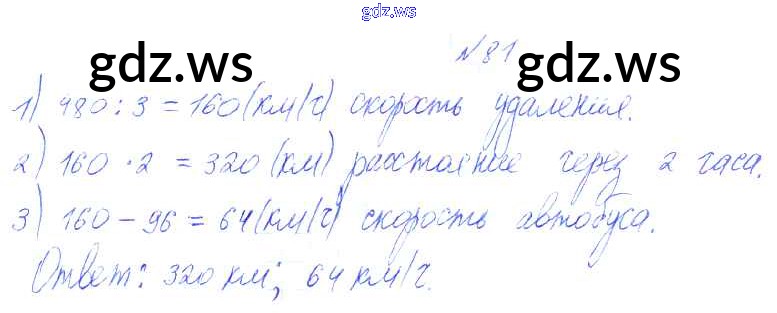 gdz.ws
№ 81
gdz.ws gdz.ws
1) 480 : 3 = 160 (км/ч) скорость удаления.
2) 160 · 2 = 320 (км) расстояние через 2 часа.
3) 160 - 96 = 64 (км/ч) скорость автобуса.
Ответ: 320 км; 64 км/ч.